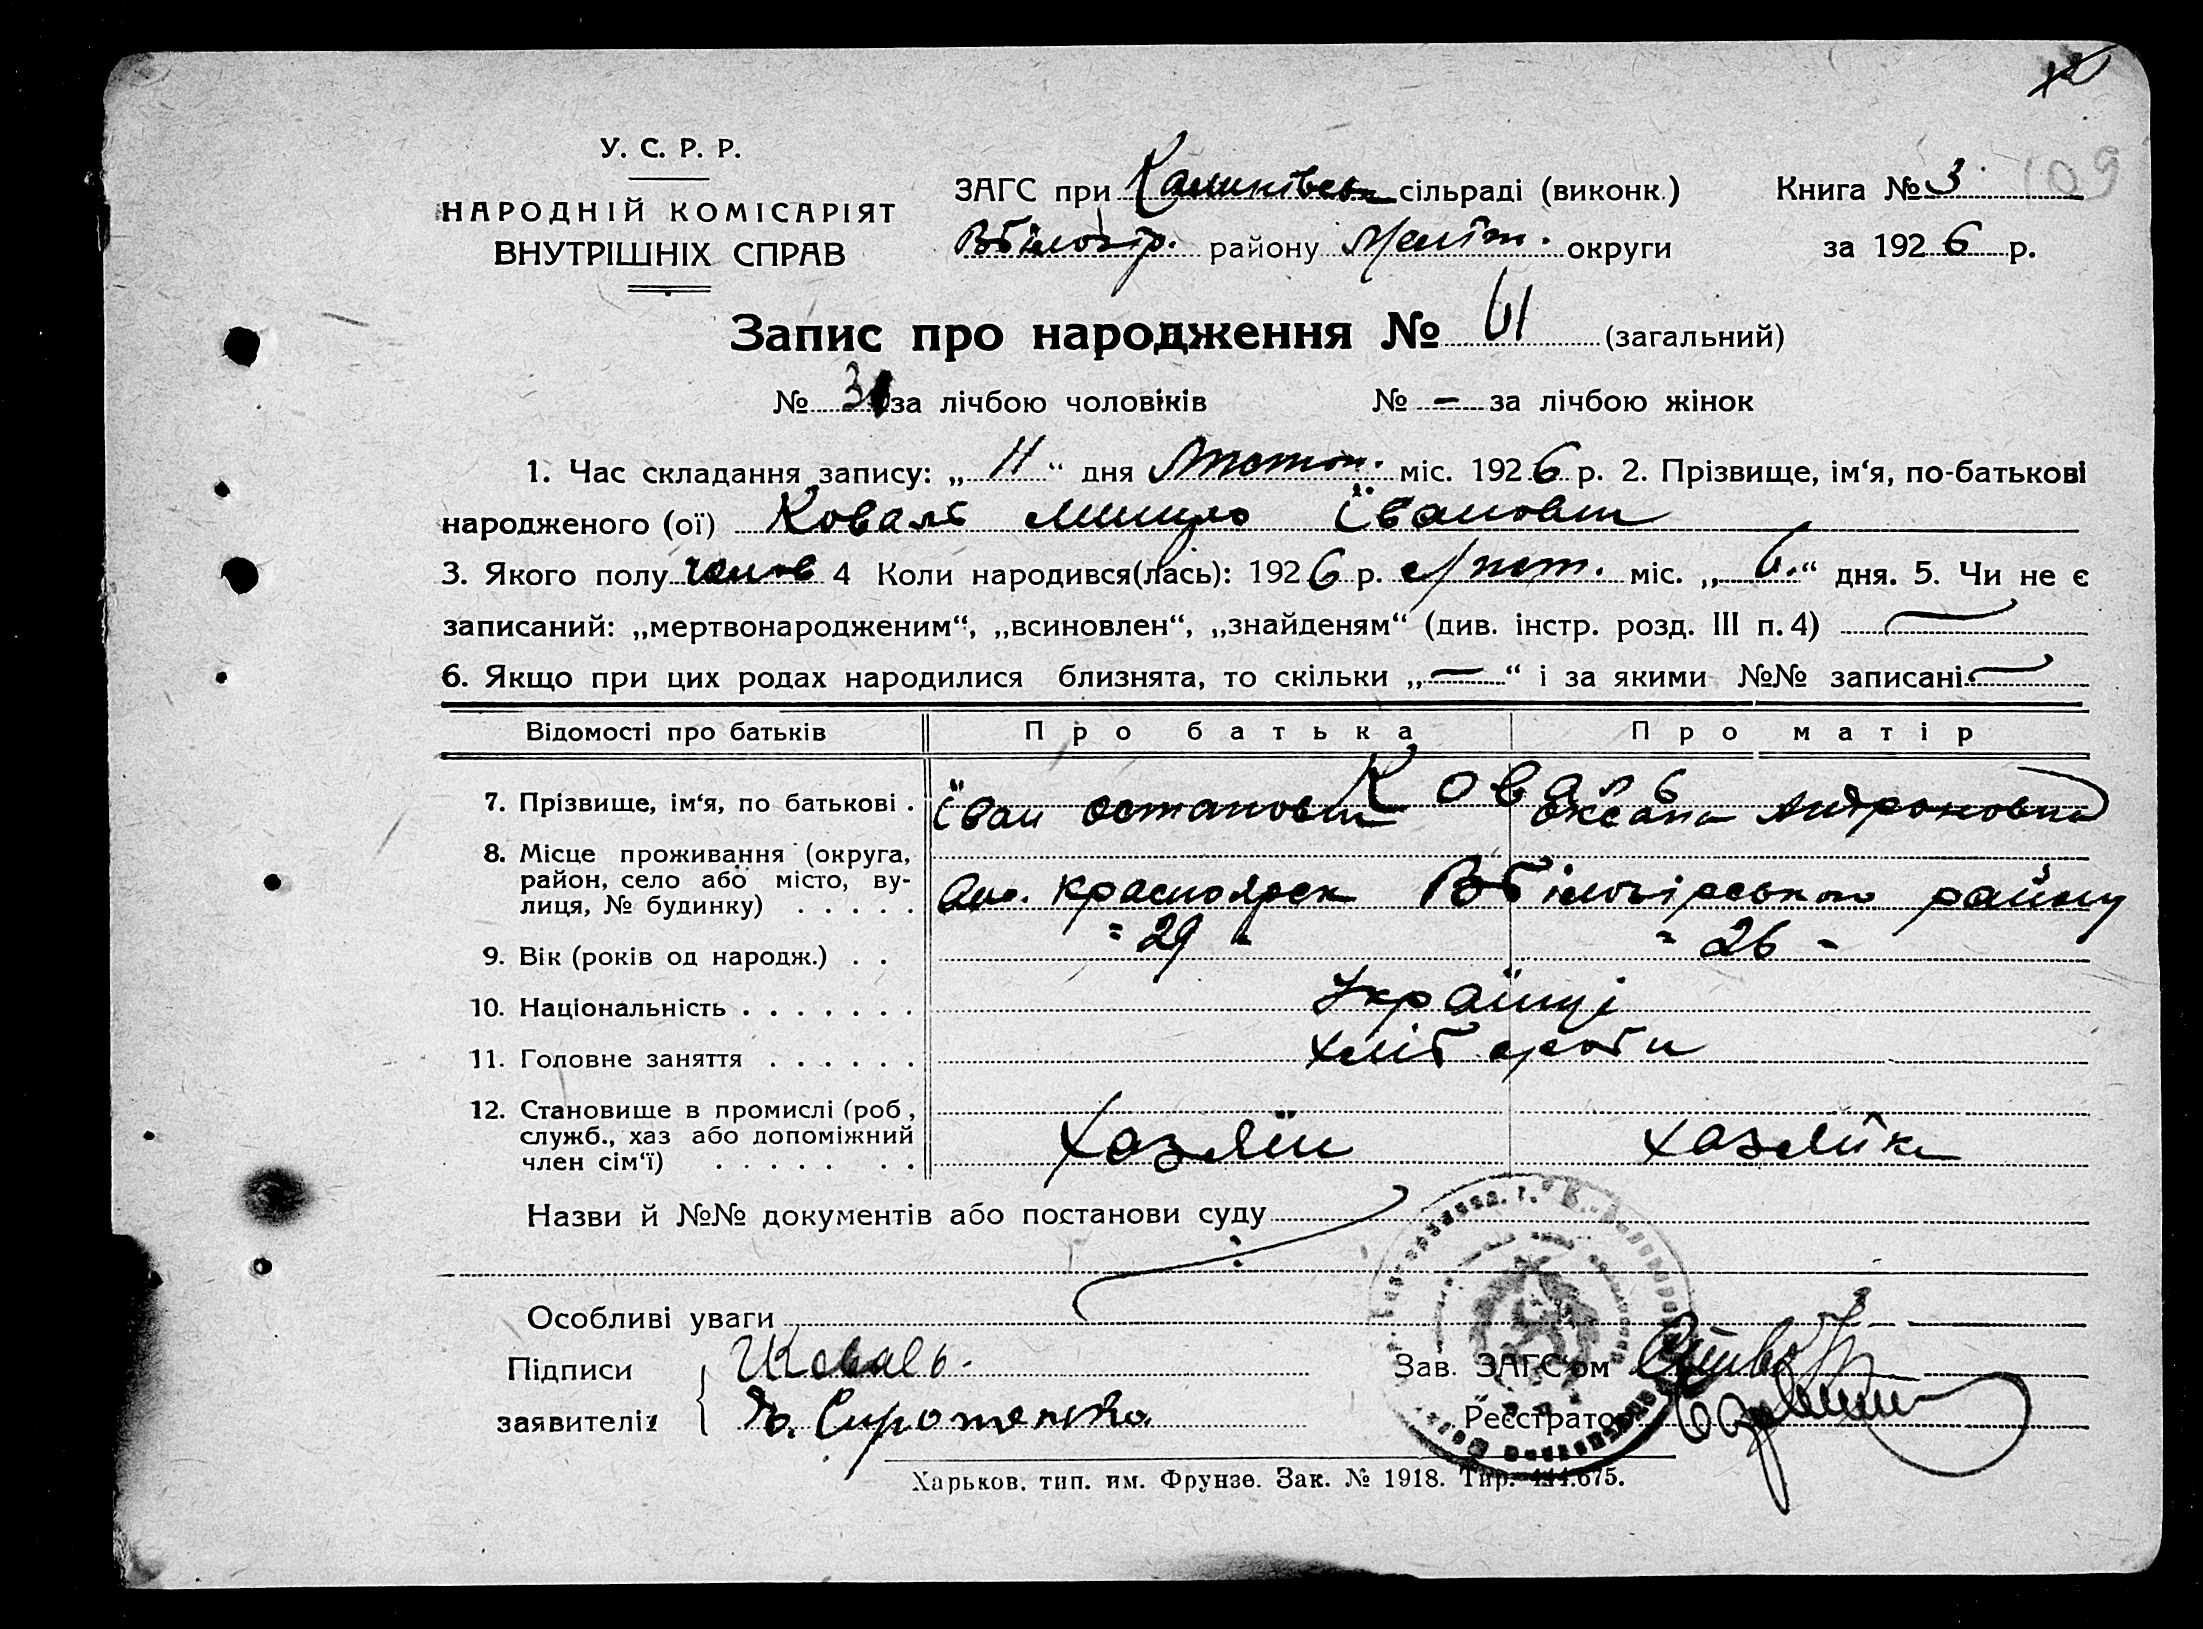 109
У. С. Р. Р.
НАРОДНІЙ КОМІСАРІЯТ
ВНУТРІШНІХ СПРАВ
ЗАГС при сільраді (виконк.)
Книга № 3
В Білозір. району Меліт. округи
за 1926 р.
Запис про народження № 61 (загальний)
№ 31 за лічбою чоловіків № — за лічбою жінок
1. Час складання запису: „ 11 “ дня Листоп. міс. 1926 р. 2. Прізвище, ім‘я, по-батькові
народженого (ої) Коваль Іванович
3. Якого полу чолов 4 Коли народився(лась): 1926 р. Лист. міс. „ 6. “ дня. 5. Чи не є
записаний: „мертвонародженим“, „всиновлен“, „знайденям“ (див. інстр. розд. III п. 4) —
6. Якщо при цих родах народилися близнята, то скільки „ — “ і за якими №№ записані —
Відомості про батьків Про батька Про матір
Коваль
7. Прізвище, ім‘я, по батькові . Іван Остапович Оксана Андроновна
8. Місце проживання (округа,
район, село або місто, ву-
лиця, № будинку) . . . . . Красноярск В Білозірського району
9. Вік (років од народж.) . . = 29 = = 26 -
10. Національність . . . . . . . Українці
11. Головне заняття . . . . . . Хлібороби
12. Становище в промислі (роб,
служб., хаз або допоміжний
член сім‘ї) . . . . . . . Хазяїн Хазяйка
Назви й №№ документів або постанови суду
Особливі уваги
Підписи ІКоваль.
Зав. ЗАГС‘ом
заявителів Сиротенко
Реєстратор
Харьков, тип. им. Фрунзе. Зак. № 1918. Тир. 444.675.